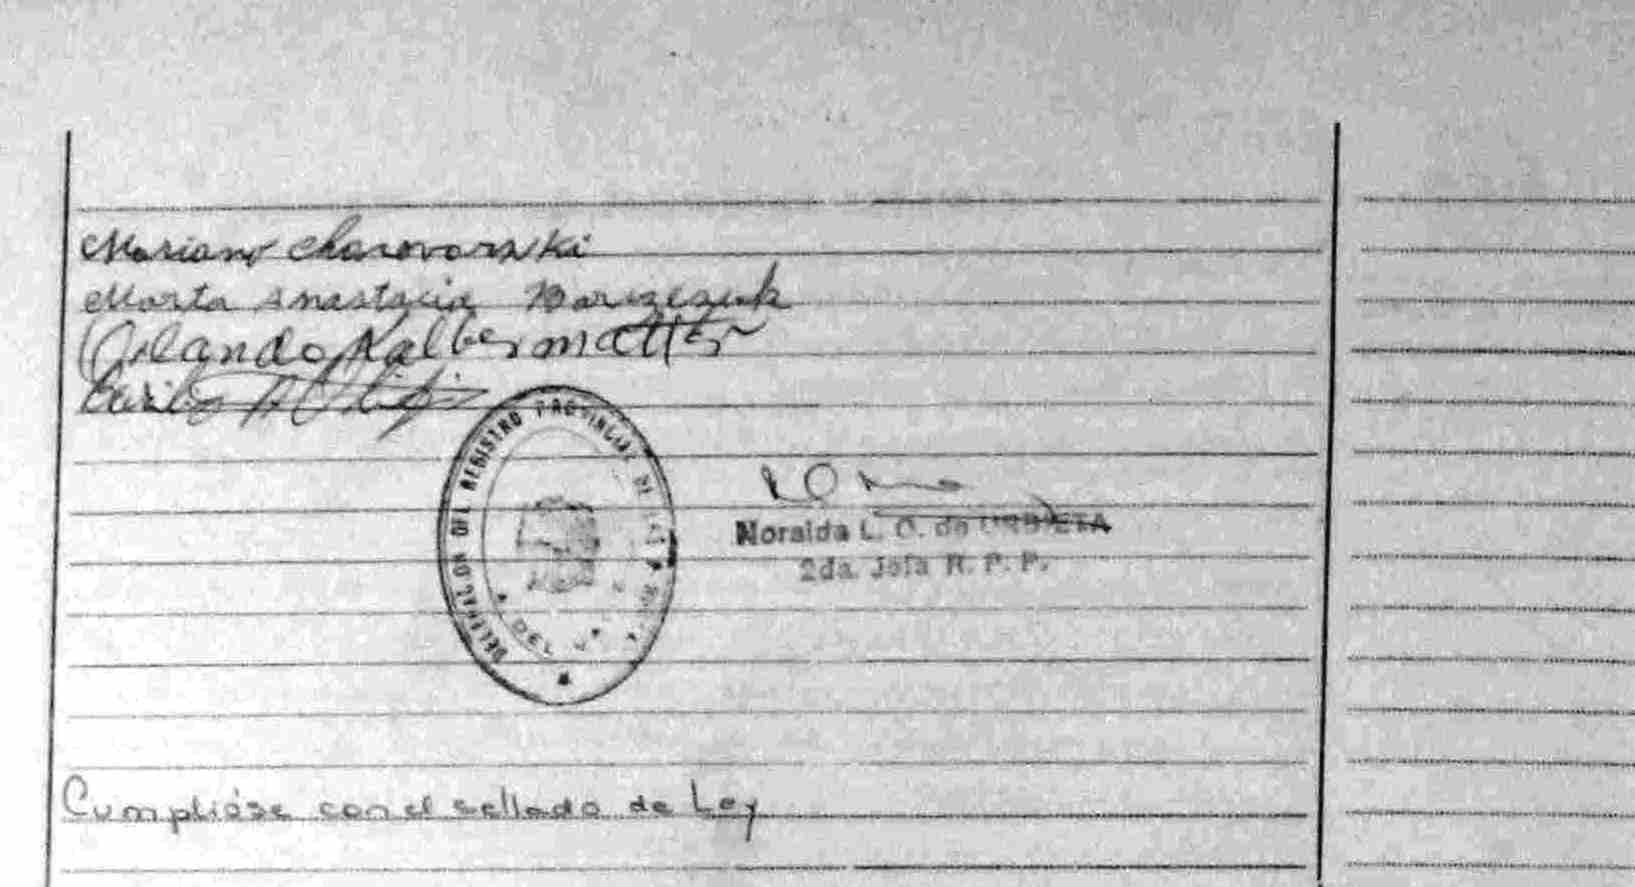 Mariano Charovarski
Marta Anastacia
Orlando Kalbermatter
DELEGACION DEL REGISTRO PROVINCIAL DE LAS
Noraida L. O. de URBIETA
2da. Jefa R. P. P.
Cumplióse con el sellado de Ley